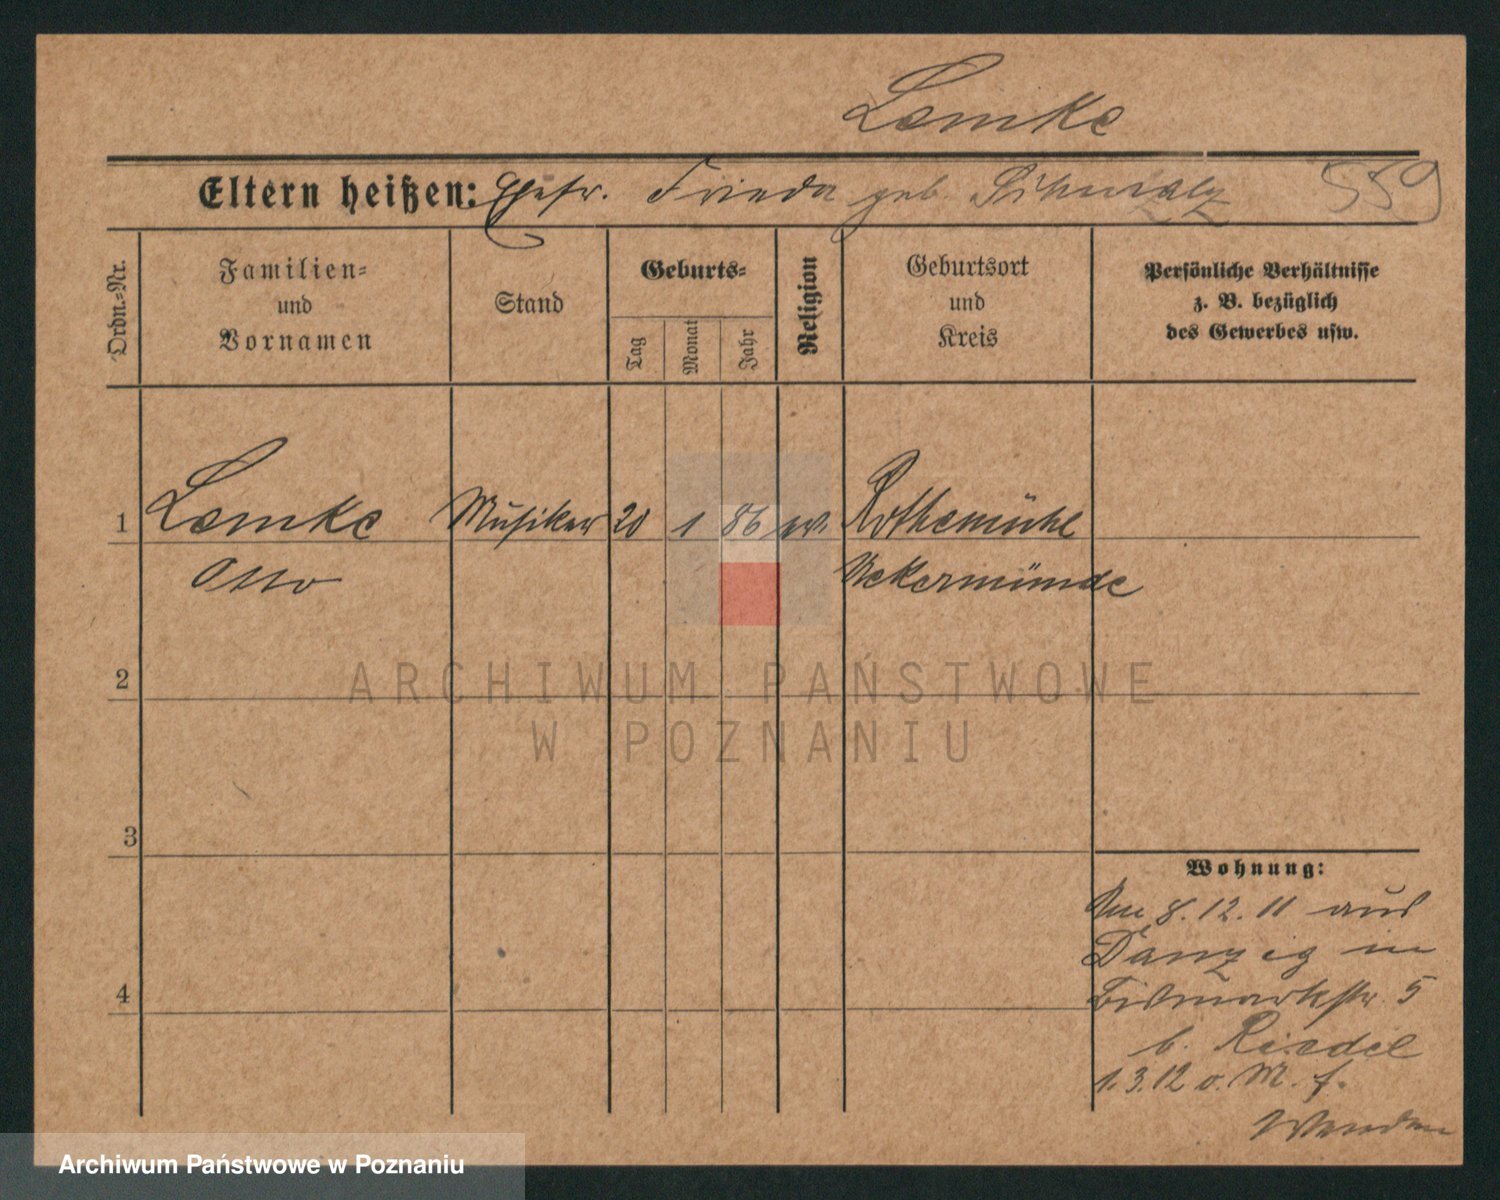 Lemke
Eltern heißen: Ehefr. Frieda geb. Schmalz 559
Ordn.=Nr.
Familien=
und
Vornamen
Stand
Geburts=
Tag
Monat
Jahr
Religion
Geburtsort
und
Kreis
Persönliche Verhältnisse
z. B. bezüglich
des Gewerbes usw.
1 Lemke Musiker 20 1 86 ev. Rothemühl
Otto Uekermünde
2
ARCHIWUM PAŃSTWOWE
W POZNANIU
3
Wohnung:
8.12.11 aus
Danzig in
Bismarkstr. 5
b. Riedel
4
1.3.12 o. M. f.
Wenden
Archiwum Państwowe w Poznaniu